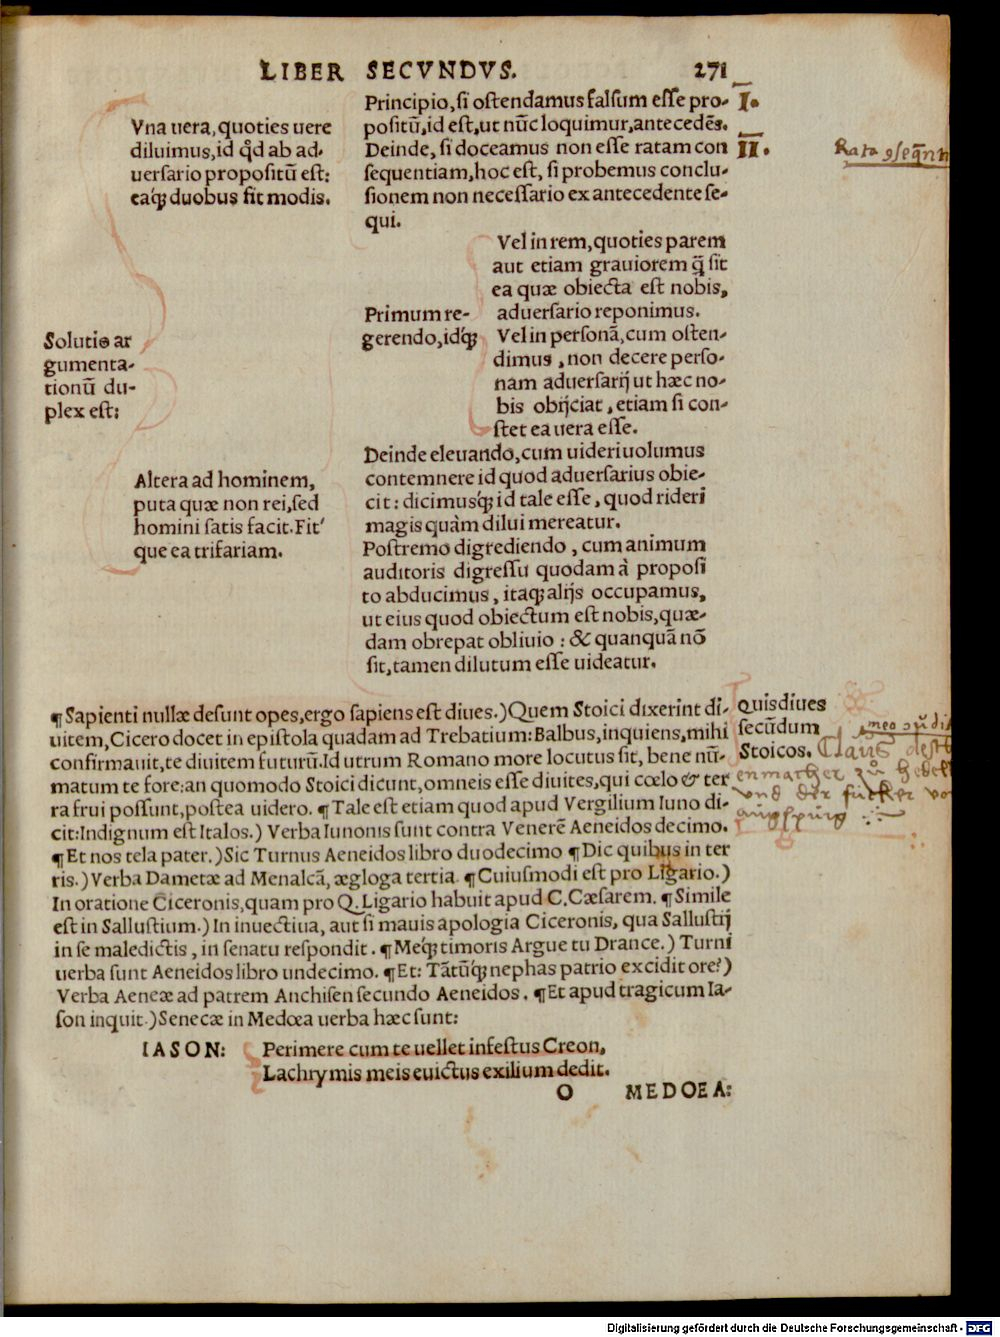 LIBER SECVNDVS. 271
Vna uera, quoties uere
diluimus, id qd̊ ab ad-
uersario propositū est:
eaq́; duobus fit modis.
Principio, si ostendamus falsum esse pro-
positū, id est, ut nūc loquimur, antecedēs.
Deinde, si doceamus non esse ratam con
sequentiam, hoc est, si probemus conclu-
sionem non necessario ex antecedente se-
qui.
I.
II.
Rata
Solutio ar
gumenta-
tionū du-
plex est:
Altera ad hominem,
puta quæ non rei, sed
homini satis facit. Fit'
que ea trifariam.
Primum re-
gerendo, idq́;
Vel in rem, quoties parem
aut etiam grauiorem q̄ sit
ea quæ obiecta est nobis,
aduersario reponimus.
Vel in personā, cum osten-
dimus, non decere perso-
nam aduersarij ut hæc no-
bis obijciat, etiam si con-
stet ea uera esse.
Deinde eleuando, cum uideri uolumus
contemnere id quod aduersarius obie-
cit: dicimusq́; id tale esse, quod rideri
magis quàm dilui mereatur.
Postremo digrediendo, cum animum
auditoris digressu quodam à proposi
to abducimus, itaq; alijs occupamus,
ut eius quod obiectum est nobis, quæ-
dam obrepat obliuio: & quanquā nō
sit, tamen dilutum esse uideatur.
¶ Sapienti nullæ desunt opes, ergo sapiens est diues.) Quem Stoici dixerint di-
uitem, Cicero docet in epistola quadam ad Trebatium: Balbus, inquiens, mihi
confirmauit, te diuitem futurū. Id utrum Romano more locutus sit, bene nū-
matum te fore: an quomodo Stoici dicunt, omneis esse diuites, qui cœlo & ter
ra frui possunt, postea uidero. ¶ Tale est etiam quod apud Vergilium Iuno di-
cit: Indignum est Italos.) Verba Iunonis sunt contra Venerē Aeneidos decimo.
¶ Et nos tela pater.) Sic Turnus Aeneidos libro duodecimo ¶ Dic quibus in ter
ris.) Verba Dametæ ad Menalcā, ægloga tertia. ¶ Cuiusmodi est pro Ligario.)
In oratione Ciceronis, quam pro Q. Ligario habuit apud C. Cæsarem. ¶ Simile
est in Sallustium.) In inuectiua, aut si mauis apologia Ciceronis, qua Sallustij
in se maledictis, in senatu respondit. ¶ Meq́; timoris Argue tu Drance.) Turni
uerba sunt Aeneidos libro undecimo. ¶ Et: Tātūq́; nephas patrio excidit ore?)
Verba Aeneæ ad patrem Anchisen secundo Aeneidos. ¶ Et apud tragicum Ia-
son inquit.) Senecæ in Medœa uerba hæc sunt:
Quis diues
secūdum
Stoicos.
und der fucker
augspurg
IASON: Perimere cum te uellet infestus Creon,
Lachrymis meis euictus exilium dedit.
O MEDOEA:
Digitalisierung gefördert durch die Deutsche Forschungsgemeinschaft - DFG